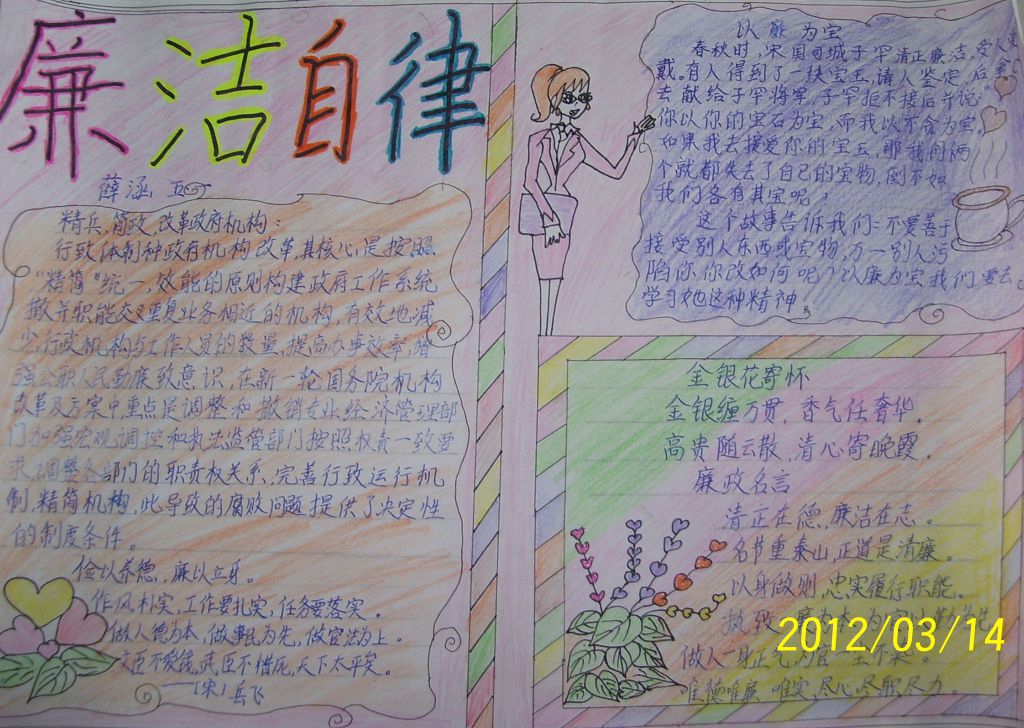 廉洁自律
薛涵
精兵,简政,改革政府机构:
行致体制种政府机构改革,其核心是按照
“精简”统一,效能的原则构建政府工作系统
撤并职能交叉重复业务相近的机构,有效地减
少行政机构与工作人员的数量,提高办事效率,增
强公职人民勤廉致意识,在新一轮国务院机构
改革及方案中重点是调整和撤销专业经济管理部
门加强宏观调控和执法监管部门按照权责一致要
求,调整各部门的职责权关系,完善行致运行机
制,精简机构,此导致的腐败问题提供了决定性
的制度条件。
俭以养德,廉以立身。
作风朴实,工作要扎实,任务要落实。
做人德为本,做事民为先,做官法为上。
文臣不爱钱,武臣不惜死,天下太平矣。
——(宋)岳飞
以廉为宝
春秋时,宋国司城子罕清正廉洁,受人爱
戴。有人得到了一块宝玉,请人鉴定后拿
去献给子罕将军,子罕拒不接后并说:“
你以你的宝石为宝,而我以不贪为宝。
如果我去接爱你的宝玉,那我们俩
个就都失去了自己的宝物,倒不如
我们各有其宝呢,
这个故事告诉我们:不要善于
接受别人东西或宝物,万一别人污
陷你,你改如何呢?以廉为宝我们要去
学习她这种精神。
金银花寄怀
金银缠万贯,香气任奢华。
高贵随云散,清心寄晚霞。
廉政名言
清正在德,廉洁在志。
名节重泰山,正道是清廉。
以身做则,忠实履行职能。
执致廉为本为官
2012/03/14
做人一身正气,为官一尘不染。
唯德唯廉唯实,尽心尽职尽力。